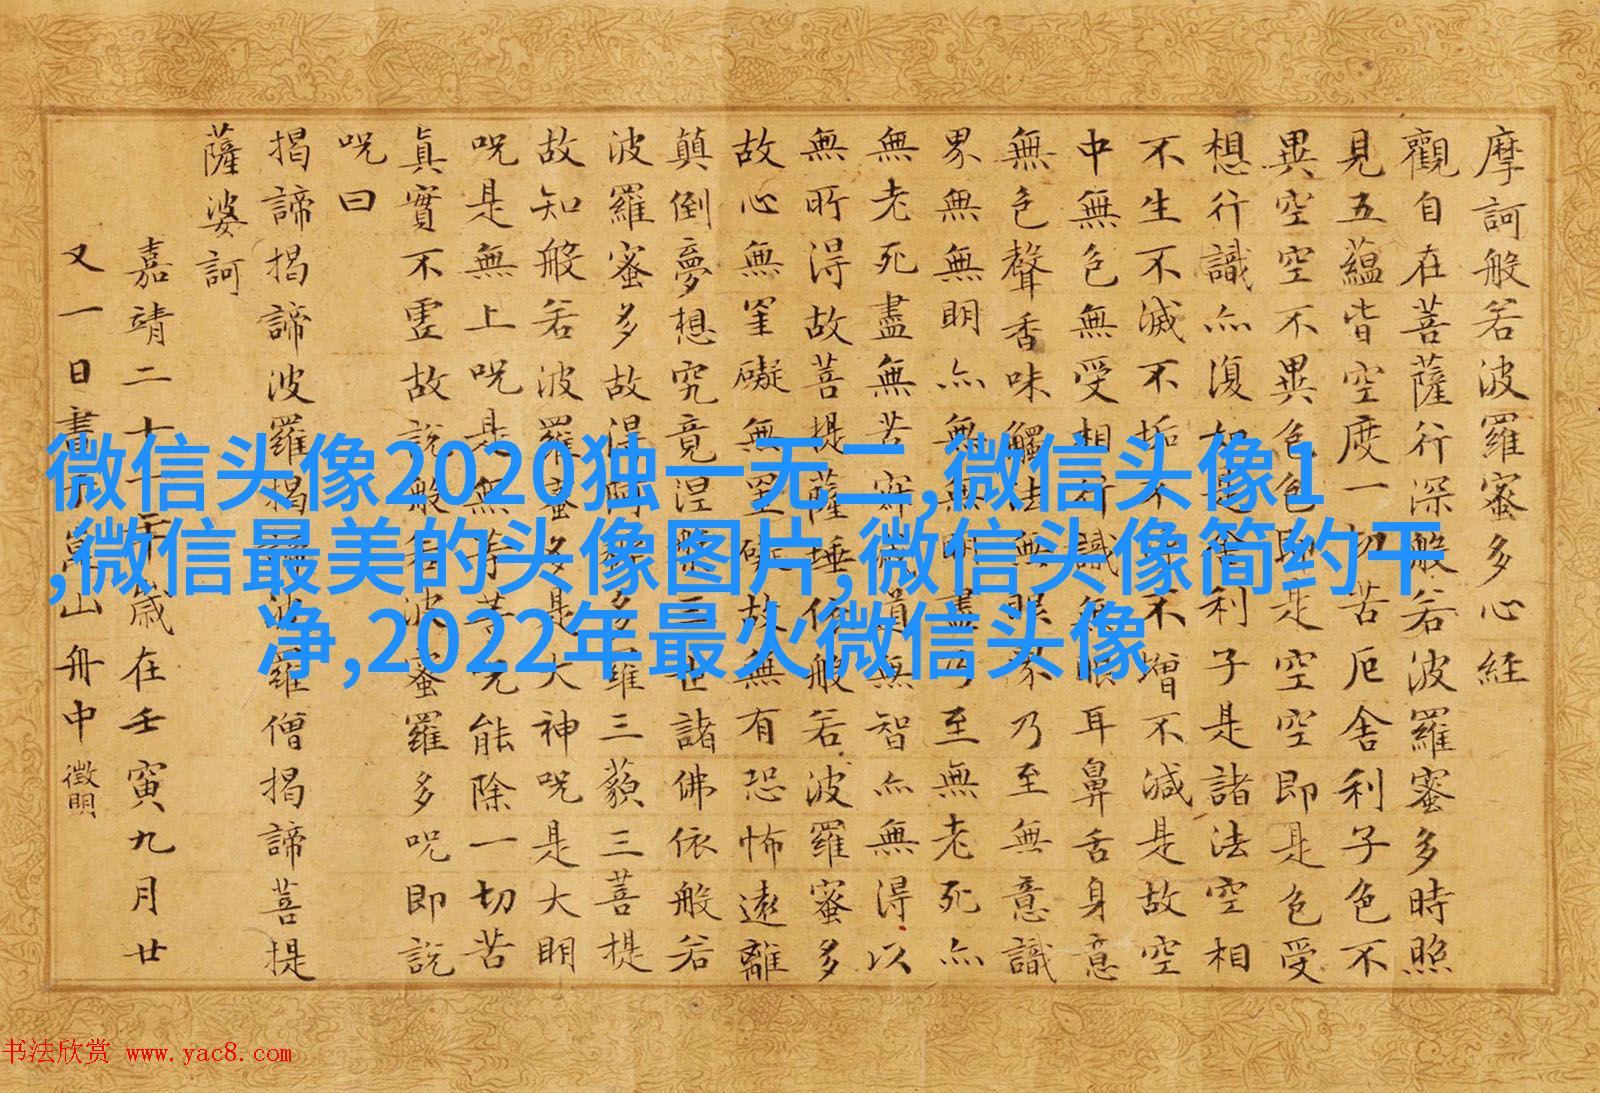 摩訶般若波羅蜜多心經
觀自在菩薩行深般若波羅蜜多時照
見五蘊皆空度一切苦厄舍利子色不
異空空不異色色即是空空即是色受
想行識亦復如是舍利子是諸法空相
不生不滅不垢不淨不增不減是故空
中無色無受想行識無眼耳鼻舌身意
無色聲香味觸法無眼界乃至無意識
界無無明亦無無明盡乃至無老死亦
無老死盡無苦寂滅道無智亦無得以
無所得故菩提薩埵依般若波羅蜜多
故心無罣礙無罣礙故無有恐怖遠離
顛倒夢想究竟涅槃三世諸佛依般若
波羅蜜多故得阿耨多羅三藐三菩提
故知般若波羅蜜多是大神呪是大明
呪是無上呪是無等等呪能除一切苦
真實不虛故說般若波羅蜜多呪即說
呪曰
揭諦揭諦波羅揭諦波羅僧揭諦菩提
薩婆訶
嘉靖二十一年歲在壬寅九月廿
又一日書山舟中 徵明
微信头像2020独一无二,微信头像1
,微信最美的头像图片,微信头像简约干
净,2022年最火微信头像
书法欣赏 www.yac8.com